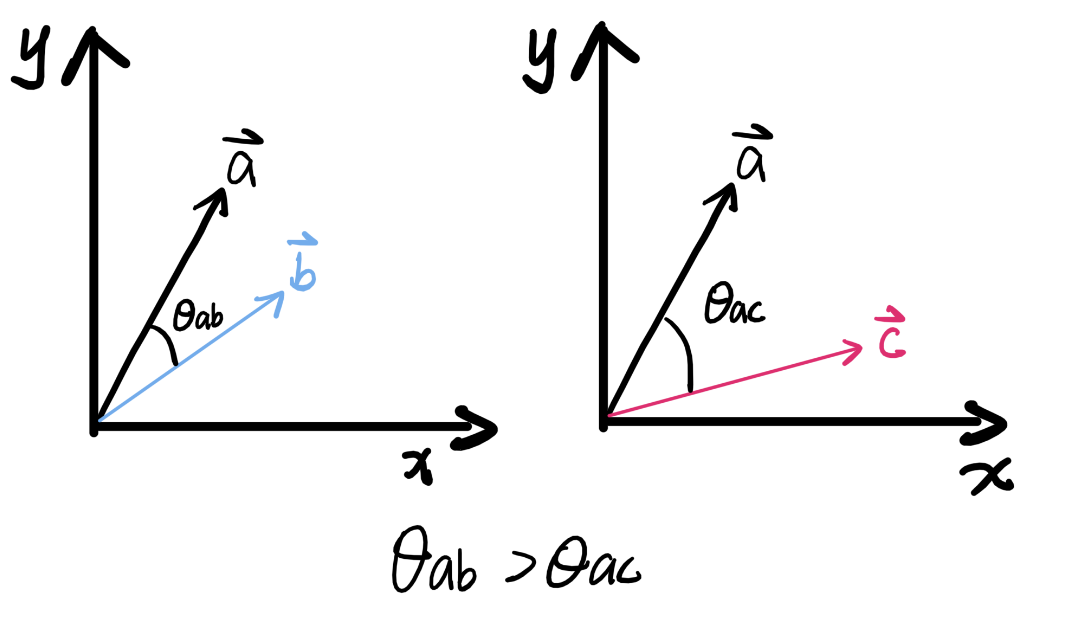 y
a⃗
b⃗
θab
x
y
a⃗
θac
c⃗
x
θab > θac